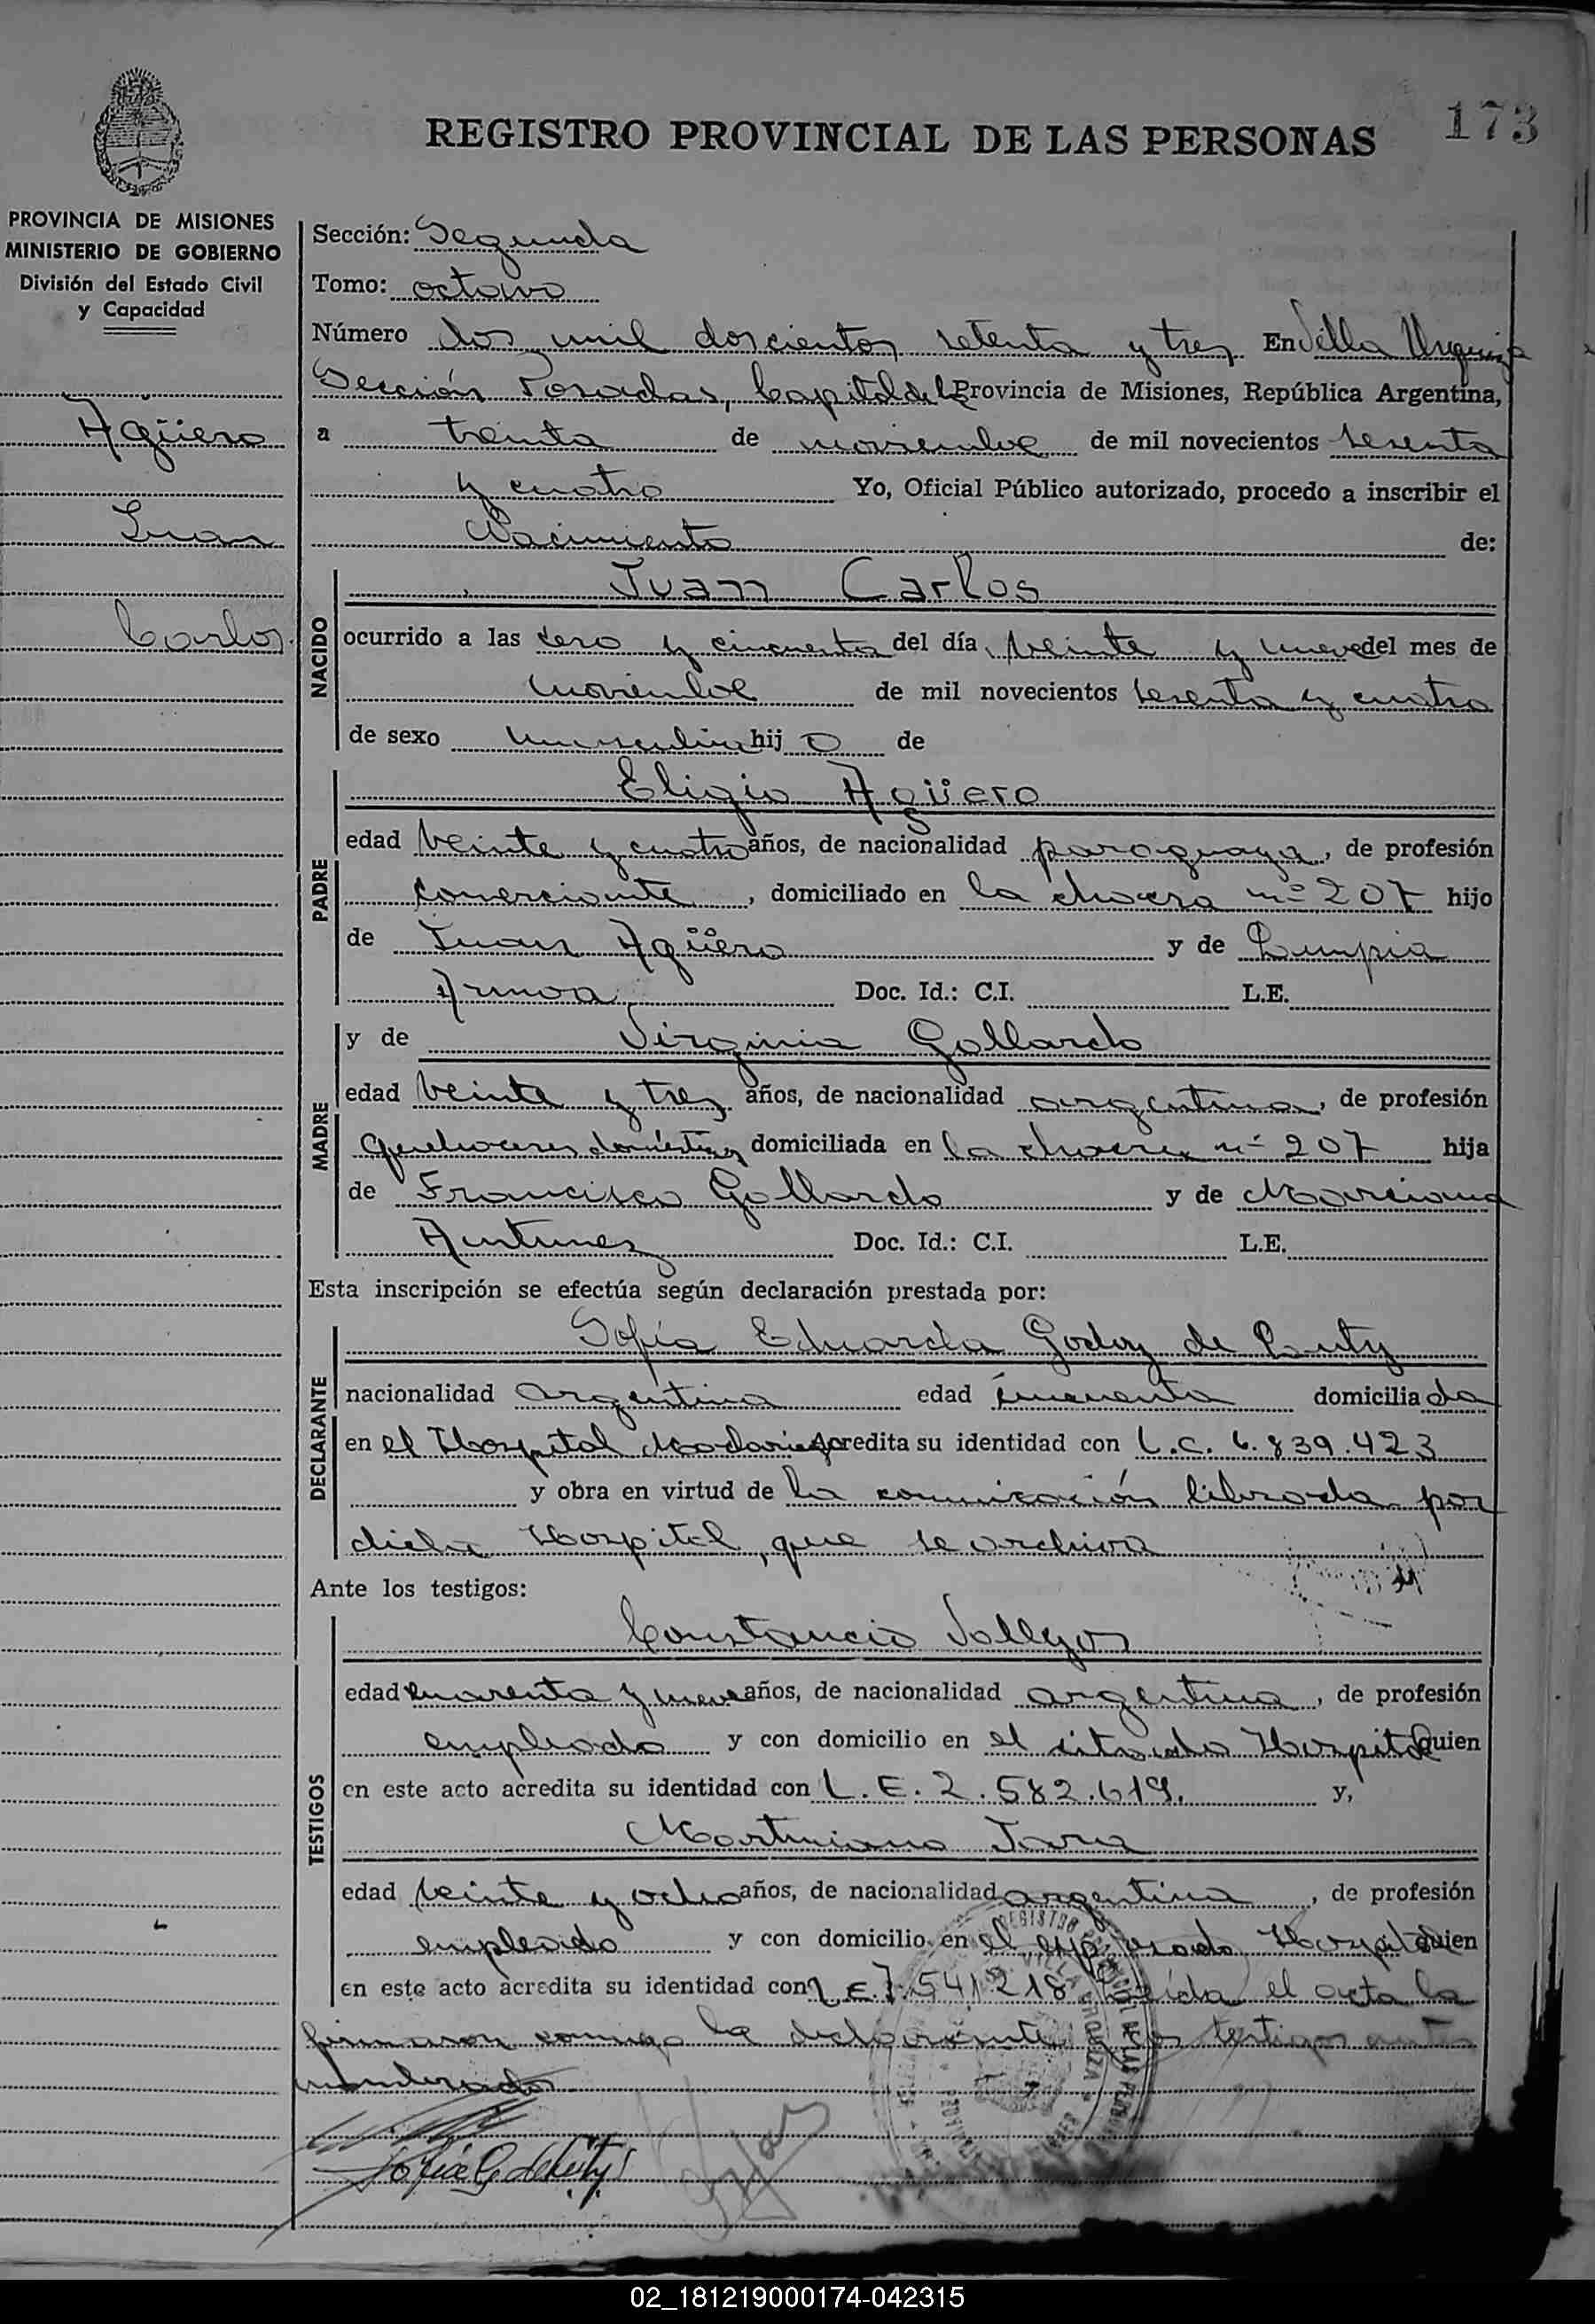 173
REGISTRO PROVINCIAL DE LAS PERSONAS
PROVINCIA DE MISIONES
MINISTERIO DE GOBIERNO
División del Estado Civil
y Capacidad
Agüero
Juan
Carlos
Sección: Segunda
Tomo: octavo
Número dos mil doscientos setenta y tres En Villa Urquiza
Sección Posadas, Capital de la Provincia de Misiones, República Argentina,
a treinta de noviembre de mil novecientos sesenta
y cuatro Yo, Oficial Público autorizado, procedo a inscribir el
Nacimiento de:
NACIDO
Juan Carlos
ocurrido a las cero y cincuenta del día veinte y nueve del mes de
noviembre de mil novecientos sesenta y cuatro
de sexo masculino hijo de
PADRE
Eligio Agüero
edad veinte y cuatro años, de nacionalidad paraguaya, de profesión
comerciante, domiciliado en la chacra nº 207 hijo
de Juan Agüero y de Limpia
Armoa Doc. Id.: C.I. L.E.
MADRE
y de Virginia Gallardo
edad veinte y tres años, de nacionalidad argentina, de profesión
quehaceres domésticos domiciliada en la chacra nº 207 hija
de Francisco Gallardo y de Marciana
Antunez Doc. Id.: C.I. L.E.
Esta inscripción se efectúa según declaración prestada por:
DECLARANTE
Sofía Eduarda Godoy de
nacionalidad argentina edad cincuenta domiciliada
en el Hospital Madariaga Acredita su identidad con L.C. 6.839.423
y obra en virtud de la comunicación librada por
dicho Hospital, que se archiva
Ante los testigos:
TESTIGOS
Constancio Vallejos
edad cuarenta y nueve años, de nacionalidad argentina, de profesión
empleado y con domicilio en el citado Hospital quien
en este acto acredita su identidad con L.E. 2.582.619. y,
Martiniano Jara
edad veinte y ocho años, de nacionalidad argentina, de profesión
empleado y con domicilio en el expresado Hospital quien
en este acto acredita su identidad con L.E. 7.541.218 Leída el acta la
firmaron conmigo la declarante y los testigos antes
nombrados
02_181219000174-042315